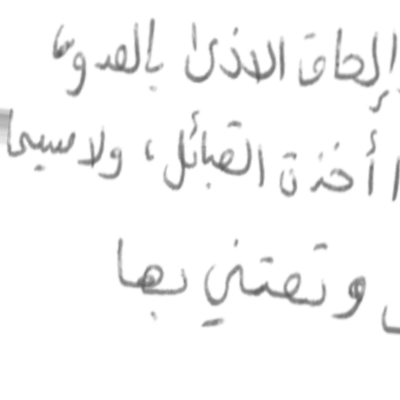 إلحاق الاذى بالعدو"
أخذت القبائل، ولا سيما
وتعتني بها